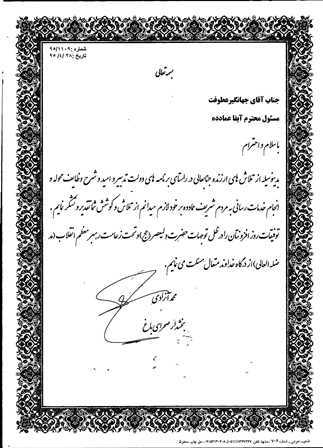 شماره : ۹۵/۱۱۰۹
تاریخ : ۹۵/۱/۲۸
بسمه تعالی
جناب آقای جهانگیر عطوفت
مسئول محترم آبفا عمادده
با سلام و احترام
بدینوسیله از تلاش های ارزنده جنابعالی در راستای برنامه های دولت تدبیر و امید و شرح وظایف محوله و
انجام خدمات رسانی به مردم شریف عمادده بر خود لازم میدانم از تلاش و کوشش شما تقدیر و تشکر نمایم .
توفیقات روز افزونتان را در ظل توجهات حضرت ولیعصر (عج) و تحت زعامت رهبر معظم انقلاب (مد
ضله العالی) از درگاه خداوند متعال مسئلت می نمایم.
محمد آزادی
بخشدار صحرای باغ